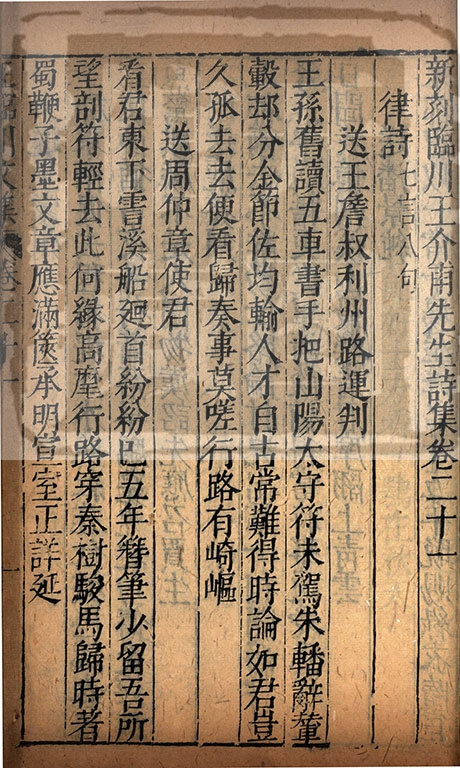 新刻臨川王介甫先生詩集卷二十一
律詩七言八句
送王詹叔利州路運判
王孫舊讀五車書手把山陽太守符未駕朱轓辭輦
轂却分金節佐均輸人才自古常難得時論如君豈
久孤去去便看歸奏事莫嗟行路有崎嶇
送周仲章使君
看君東下霅溪船廻首紛紛已五年簪筆少留吾所
望剖符輕去此何緣高麾行路穿秦樹駿馬歸時著
蜀鞭子墨文章應滿篋承明宣室正詳延
王臨川文集 卷二十一 一